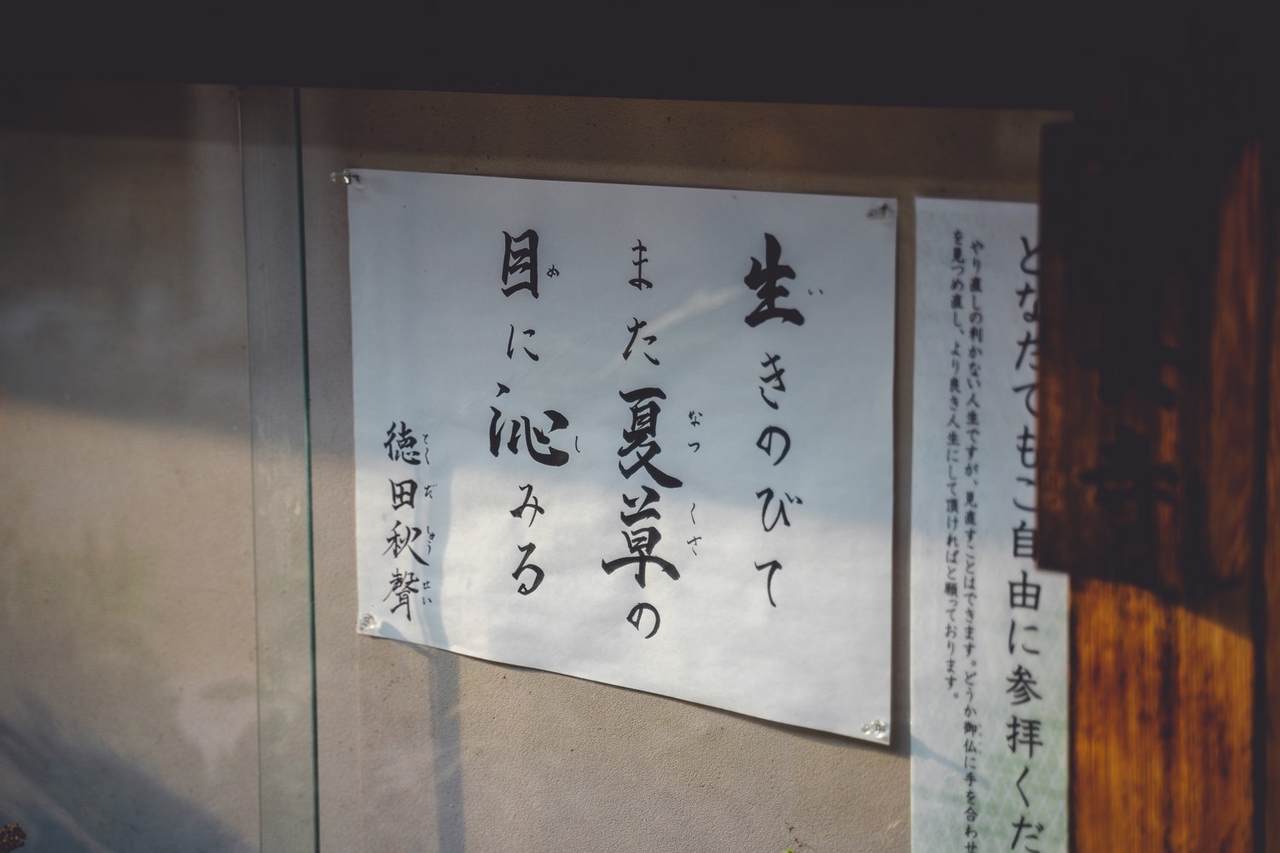 どなたでもご自由に参拝くだ
やり直しの利かない人生ですが、見直すことはできます。どうか御仏に手を合わせ
を見つめ直し、より良き人生にして頂ければと願っております。
生きのびて
また夏草の
目に沁みる
徳田秋聲
い
なつ
くさ
め
し
とくだしゅうせい